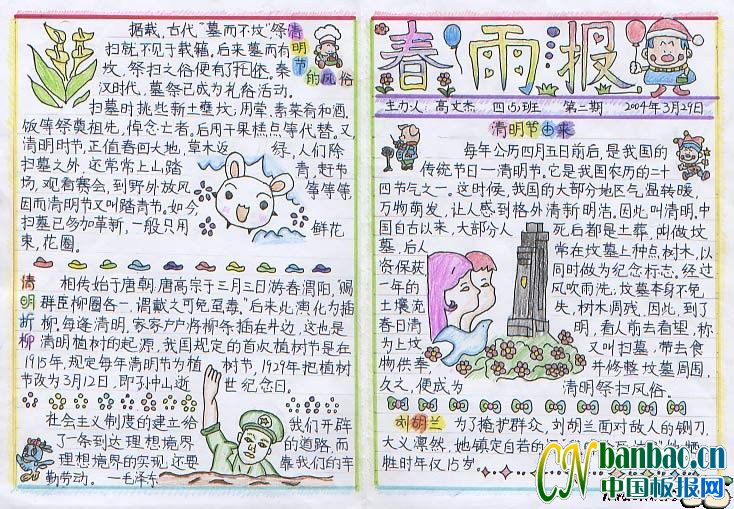 据载,古代“墓而不坟”祭
扫就不见于载籍,后来墓而有
坟,祭扫之俗便有了托依,秦
汉时代,墓祭已成为礼俗活动。
清明节的风俗
扫墓时挑些新土壅坟,用荤、素菜肴和酒、
饭等祭奠祖先,悼念亡者。后用于果糕点等代替,又
清明时节,正值春回大地,草木返绿,人们除
扫墓之外,还常常上山踏青,赶节
场,观看赛会,到野外放风筝等等,
因而清明节又叫踏青节。如今,
扫墓已多加革新,一般只用鲜花
束,花圈。
清明折柳
相传始于唐朝,唐高宗于三月三日游春渭阳,“赐
群臣柳圈各一,谓戴之可免虿毒,”后来此演化为插
柳,每逢清明,家家户户将柳条插在斗边,这也是
清明植树的起源,我国规定的首次植树节是在
1915年,规定每年清明节为植树节,1929年把植树
节改为3月12日,即孙中山逝世纪念日。
社会主义制度的建立给我们开辟
了一条到达理想境界的道路,而
理想境界的实现,还要靠我们的辛
勤劳动。—毛泽东
春雨报
主办人:高文杰 四(5)班 第二期 2009年3月29日
清明节由来
每年公历四月五日前后,是我国的
传统节日—清明节。它是我国农历的二十
四节气之一。这时候,我国的大部分地区气温转暖,
万物萌发,让人感到格外清新明洁。因此叫清明。中
国自古以来,大部分人死后都是土葬,叫做坟
墓,后人常在坟墓上种点树木,以
资保获同时做为纪念标志。经过
一年的风吹雨洗,坟墓本身不免
土壤流失,树木凋残,因此,到了
春日清明,看人前去看望,称
为上坟又叫扫墓,带去食
物供奉并修整坟墓周围,
久之,便成为清明祭扫风俗。
刘胡兰
为了掩护群众,刘胡兰面对敌人的铡刀,
大义凛然,她镇定自若的
牲时年仅15岁。
CN banbao.cn
中国板报网